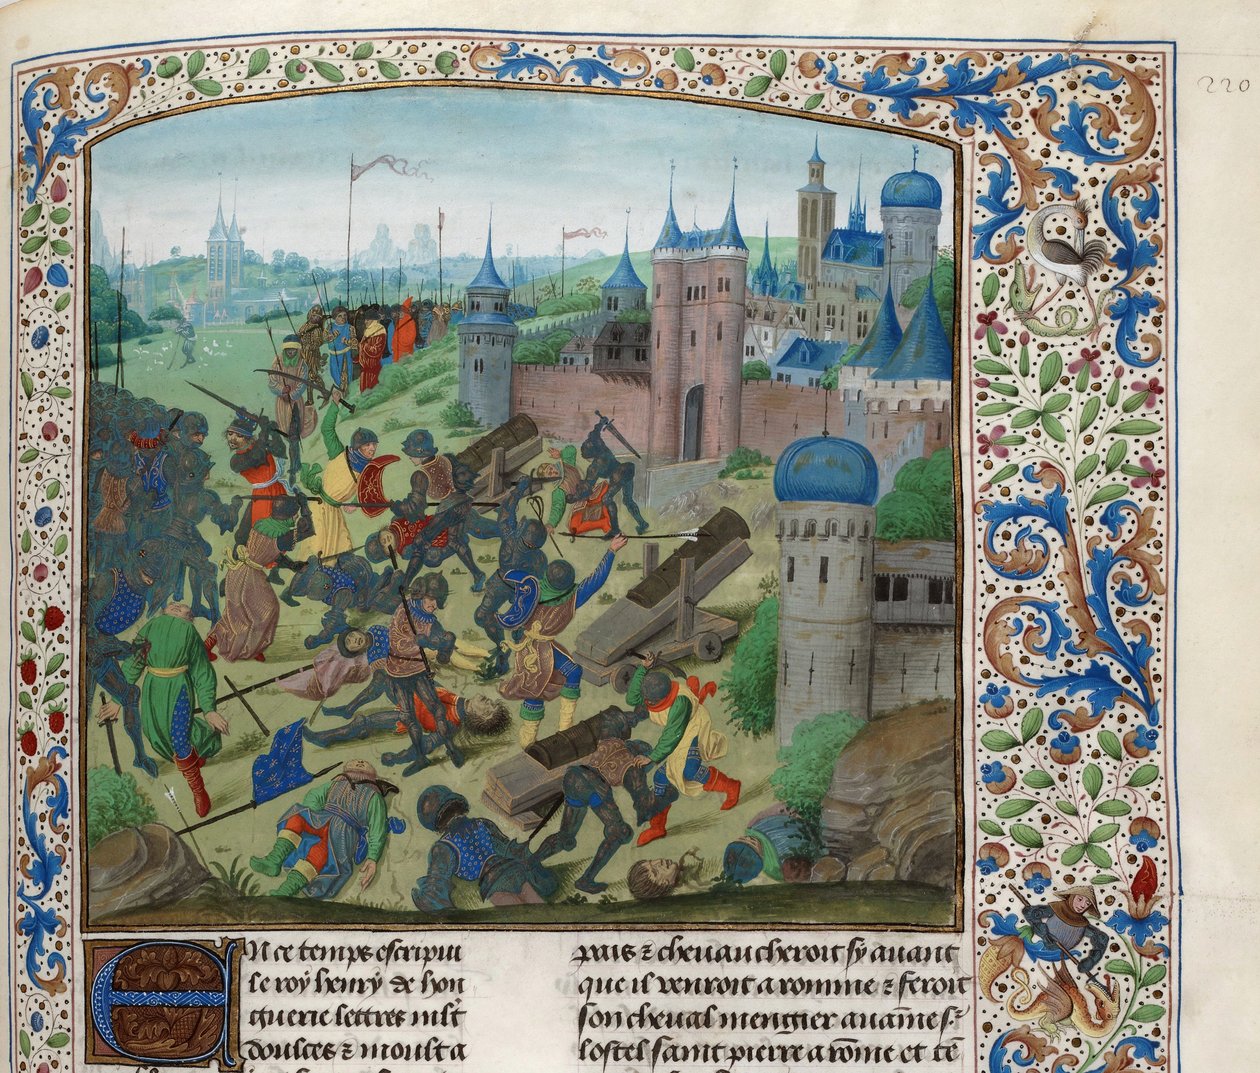 220
En ce temps escripui
le roy henry de hon
guerie lettres mlt
doulces ⁊ moult a
pais ⁊ cheuaucheroit sy auant
que il venroit a romme ⁊ feroit
son cheual mengier auaine s⁊
lostel saint pierre a rōme et tē